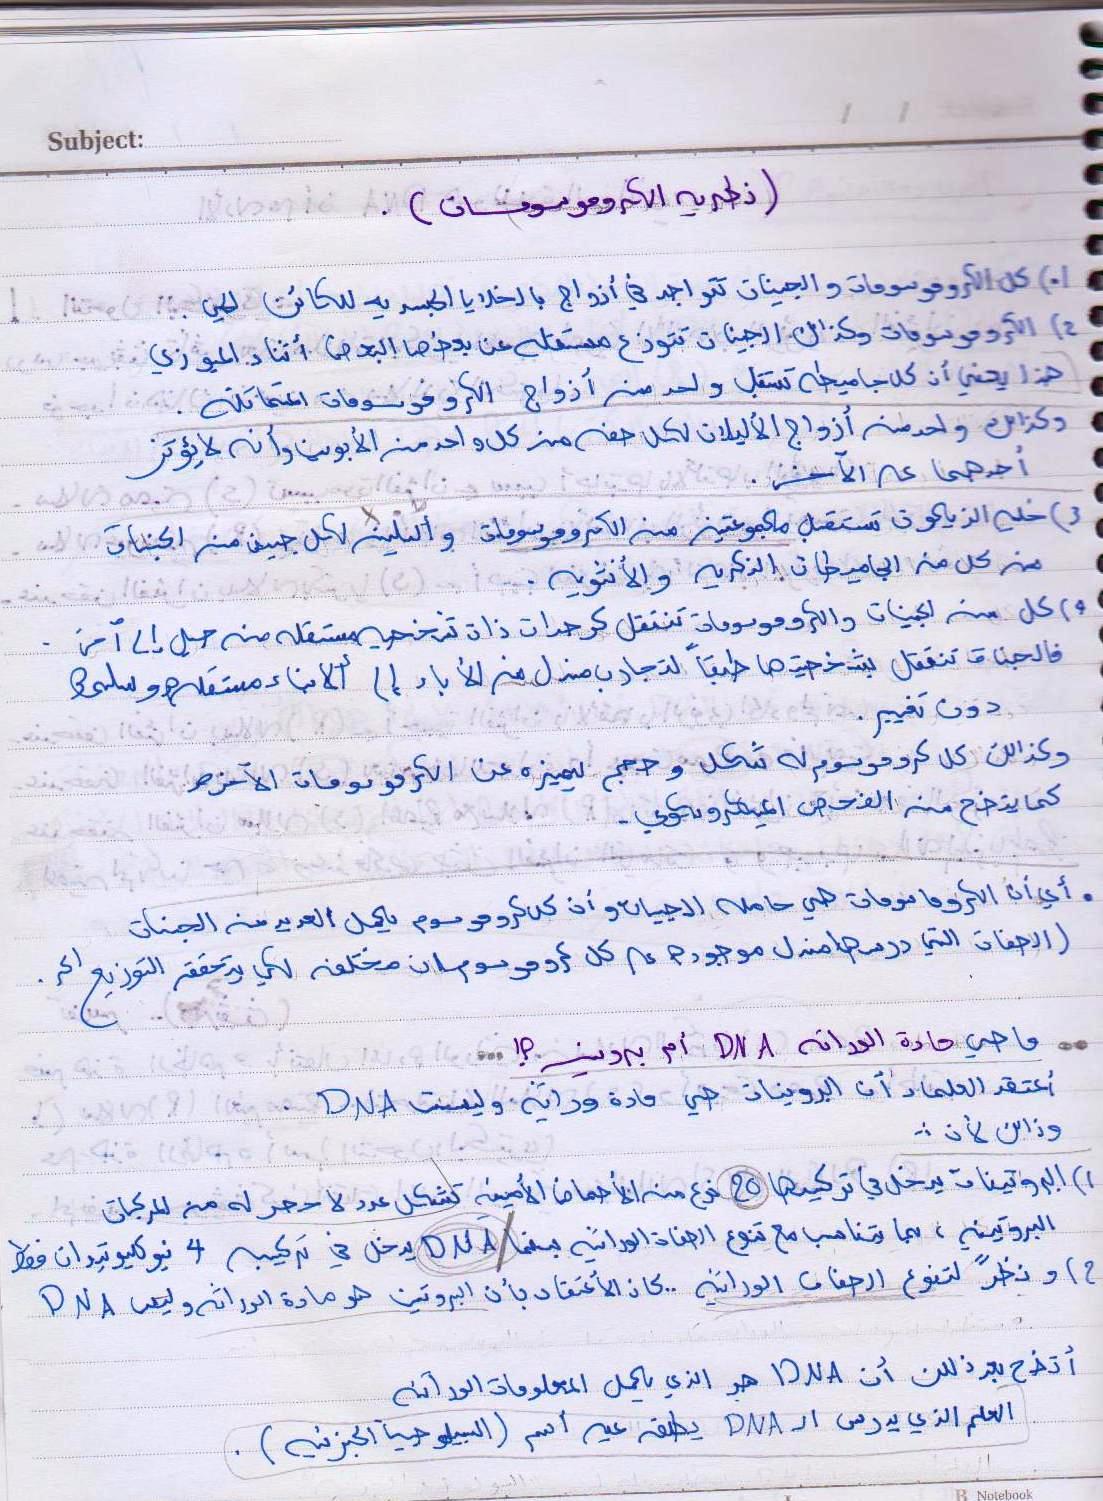 Subject:
(نظرية الكروموسومات).
1.) كل الكروموسومات والجينات تتواجد في أزواج بالخلايا الجسديه للكائن الحي.
2) الكروموسومات وكذلك الجينات تتوزع مستقله عن بعضها البعض أثناء الميوزي
هذا يعني أن كل جاميطه تستقبل واحد من أزواج الكروموسومات المتماثلة.
وكذلك واحد من أزواج الأليلات لكل صفه من كل واحد من الأبوين وأنه لا يؤثر
أحدهما على الآخر.
3) خليه الزيجوت تستقبل مجموعتين من الكروموسومات وأليلين لكل جين من الجينات
من كل من الجاميطات الذكريه والأنثويه.
4) كل من الجينات والكروموسومات تنتقل كوحدات ذات شخصيه مستقله من جيل إلى آخر.
فالجينات تنتقل بشخصيتها طبقاً لتجارب مندل من الأباء إلى الأبناء مستقله وسليمة
دون تغيير.
وكذلك كل كروموسوم له شكل وحجم يميزه عن الكروموسومات الآخرى
كما يتضح من الفحص الميكروسكوبي.
. أي أن الكروماسومات هي حامله الجينات وأن كل كروموسوم يحمل العديد من الجينات
(الصفات التي درسها مندل موجودة على كل كروموسومات مختلفه لكي يتحقق التوزيع الحر.
ما هي مادة الوراثه DNA أم بروتين ؟! ...
أعتقد العلماء أن البروتينات هي مادة وراثية وليست DNA.
وذلك لأن :-
1) البروتينات يدخل في تركيبها 20 نوع من الأحماض الأمينيه تشكل عدد لا حصر له من المركبات
البروتينيه ، بما يتناسب مع تنوع الصفات الوراثيه بينما DNA يدخل في تركيبه 4 نيوكليوتيدات فقط
2) ونظراً لتنوع الصفات الوراثيه .. كان الأعتقاد بأن البروتين هو مادة الوراثه وليس DNA
أتضح بعد ذلك أن DNA هو الذي يحمل المعلومات الوراثيه
العلم الذي يدرس الـ DNA يطلق عليه أسم (البيلوجيا الجزئيه).
B Notebook